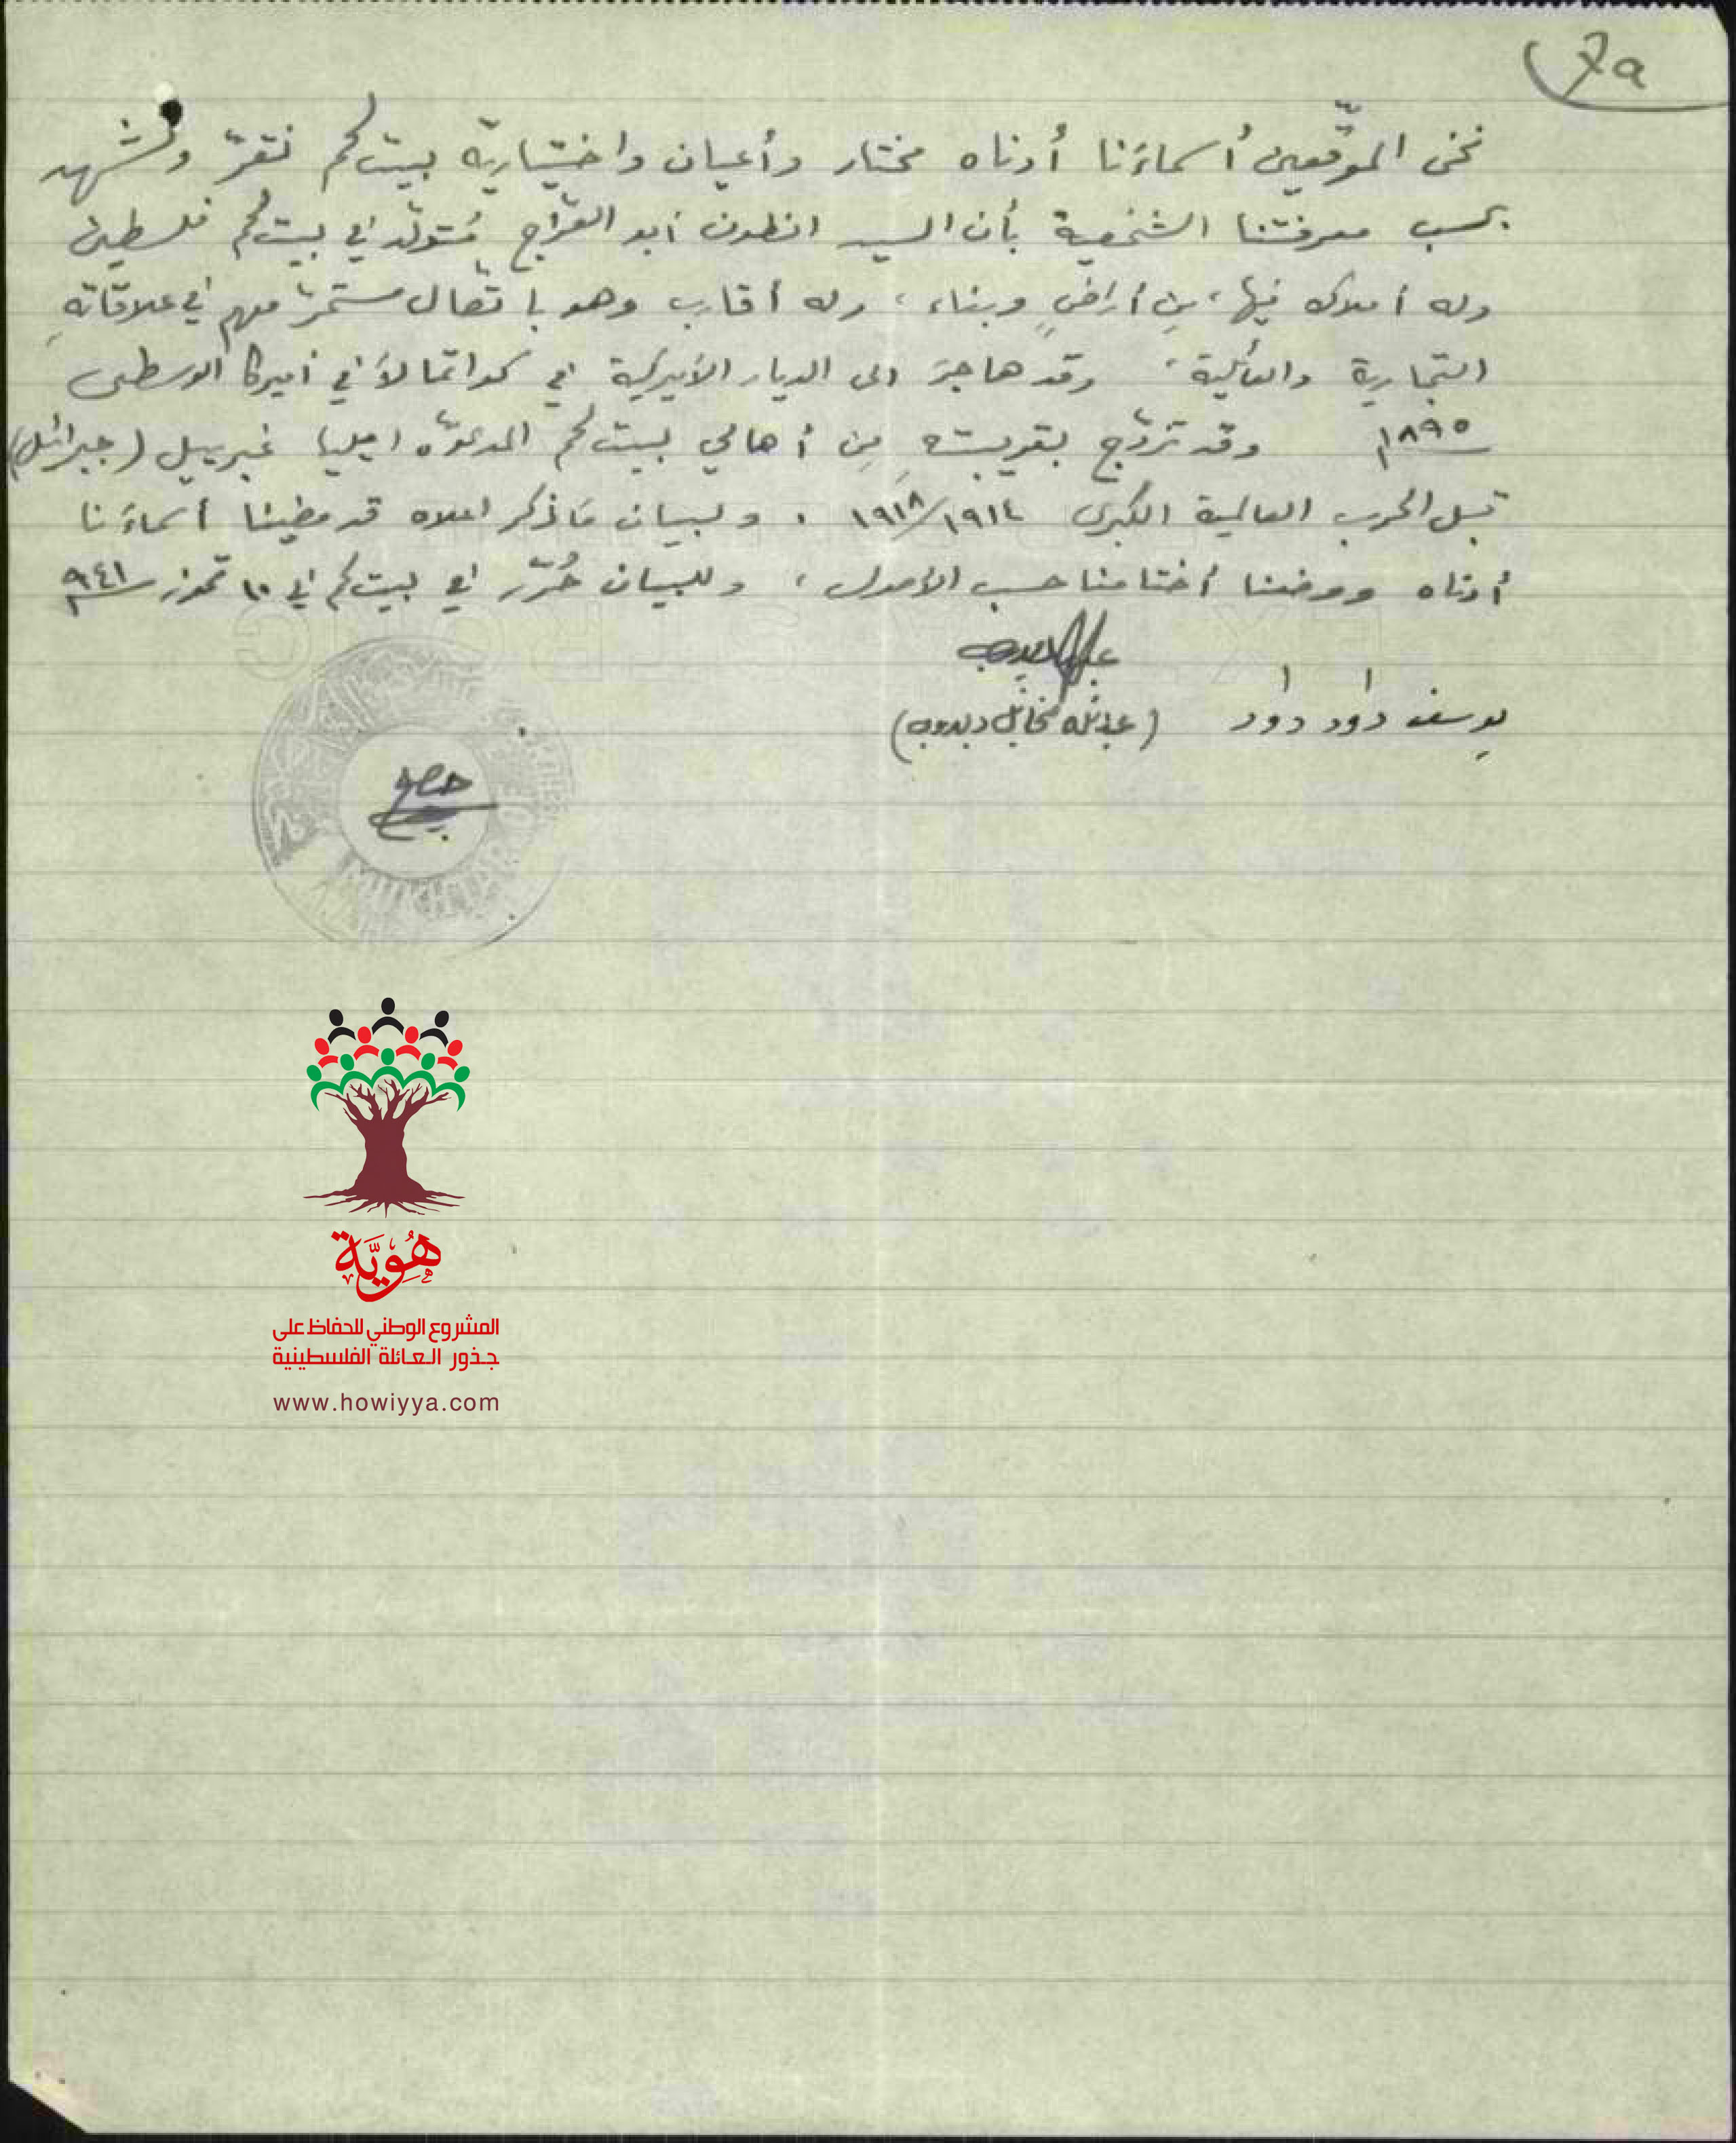 7a
نحن الموقّعين أسماءَنا أدناه مختار وأعيان واختياريّة بيت لحم نقرّ ونشهد
بحسب معرفتنا الشخصية بأن السيد انطون أبو العرّاج مُتولّد في بيت لحم فلسطين
وله أملاك فيها، مِن أراضٍ وبناء، وله أقارب وهو باتّصال مستمرّ معهم في علاقاتهِ
التجارية والعائلية، وقد هاجرَ الى الديار الأميركية في كواتمالا في أميركا الوسطى
١٨٩٥ وقد تزوّج بقريبتهِ مِن أهالي بيت لحم المدعوّه اميليا غبرييل (جبرائيل)
قبل الحرب العالمية الكبرى ١٩١٤/١٩١٨ . ولبيان مَا ذكر اعلاه قد مضينا أسماءَنا
أدناه ووضعنا أختامنا حسب الأصول، وللبيان حُرّر في بيت لحم في ١٠ تموز ٩٤١
يوسف داود داود (عبدالله مخائيل دبدوب)
MUKHTAR
هُوِيَّة
المشروع الوطني للحفاظ على
جذور العائلة الفلسطينية
www.howiyya.com